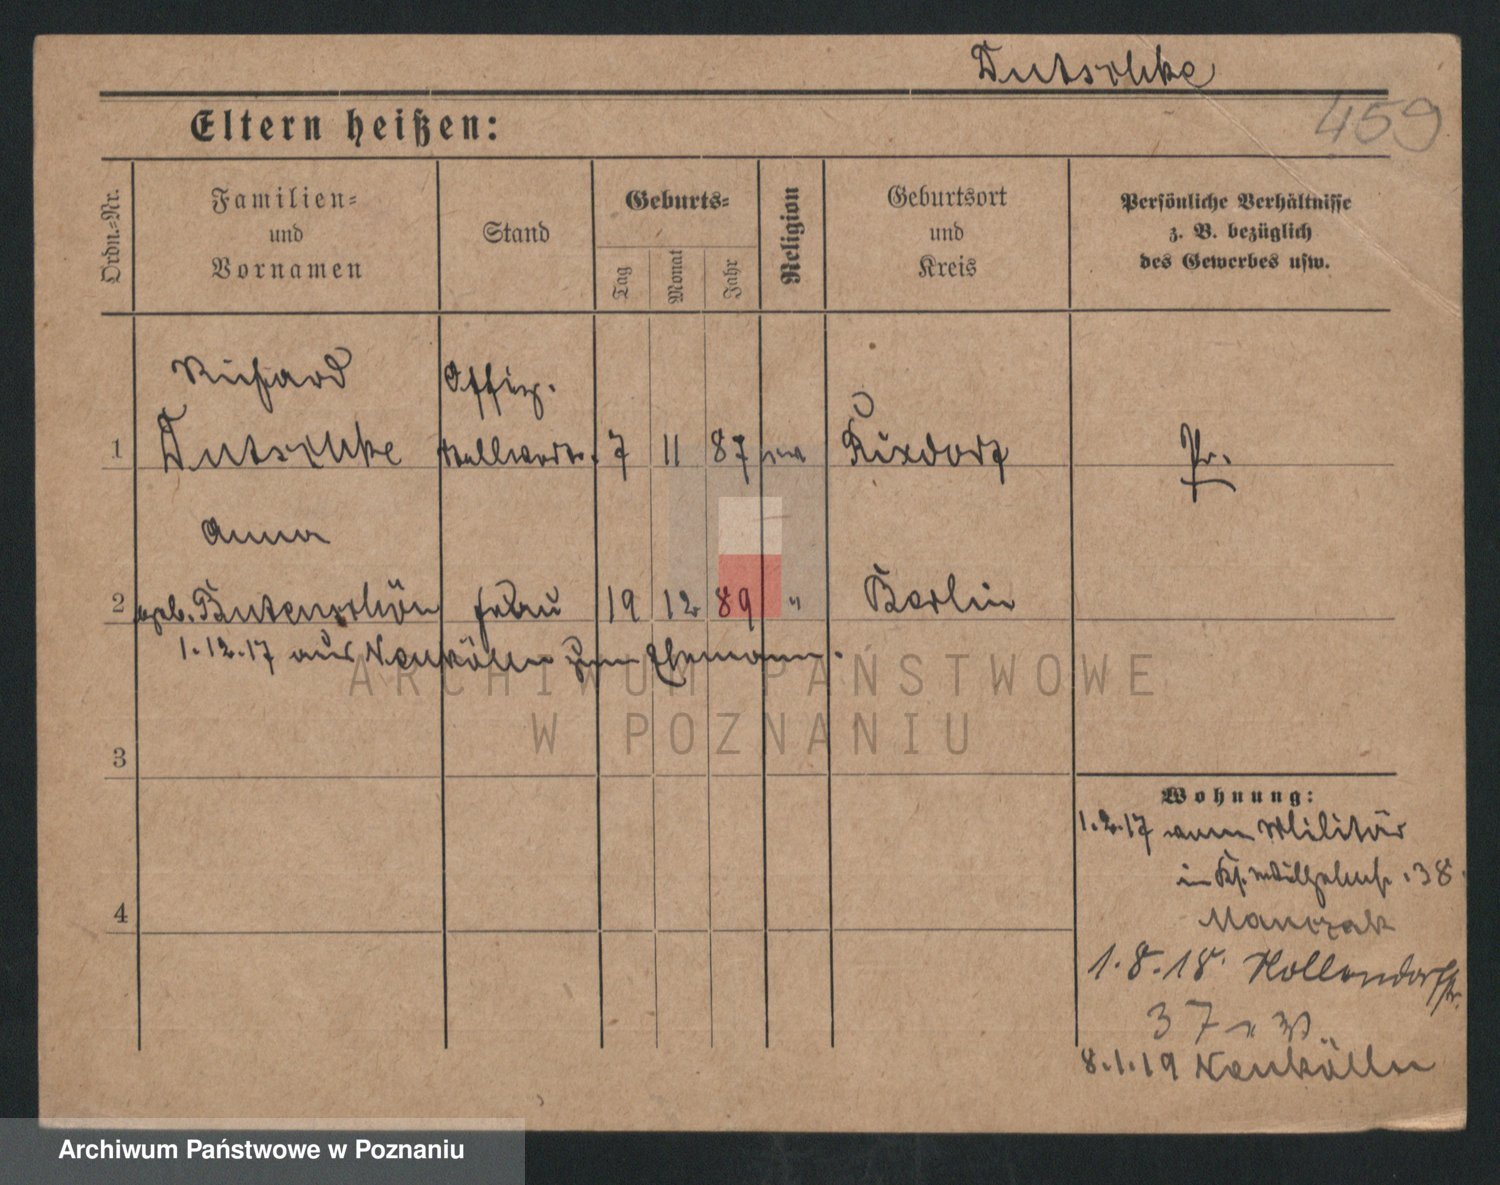 Dutschke
459
Eltern heißen:
Ordn.-Nr.
Familien-
und
Vornamen
Stand
Geburts-
Tag
Monat
Jahr
Religion
Geburtsort
und
Kreis
Persönliche Verhältnisse
z. B. bezüglich
des Gewerbes usw.
Richard Offiz.
1 Dutschke stellvertr. 7 11 87 ev Rixdorf Pr.
Anna
2 geb. Butenschön Frau 19 12 89 " Berlin
1.12.17 aus Neukölln zum Ehemann.
3
4
Wohnung:
1.2.17 vom Militär
in Ks. Wilhelmstr. 38
Manczak
1.8.18 Hollendorfstr.
37
8.1.19 Neukölln
ARCHIWUM PAŃSTWOWE
W POZNANIU
Archiwum Państwowe w Poznaniu